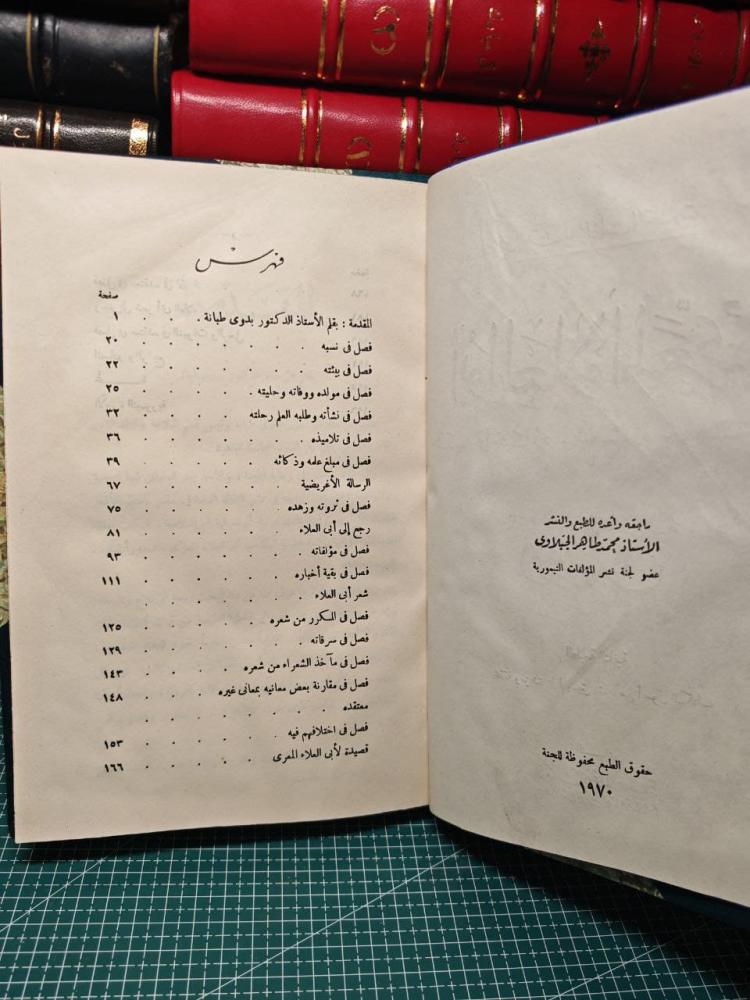 راجعه وأعده للطبع والنشر
الأستاذ محمد طاهر الجبلاوى
عضو لجنة نشر المؤلفات التيمورية
حقوق الطبع محفوظة للجنة
١٩٧٠
فهرس
صفحة
المقدمة : بقلم الأستاذ الدكتور بدوى طبانة . . . ١
فصل فى نسبه . . . . . . . ٢٠
فصل فى بيئته . . . . . . . ٢٢
فصل فى مولده ووفاته وحليته . . . . . ٢٥
فصل فى نشأته وطلبه العلم رحلته . . . . . ٣٢
فصل فى تلاميذه . . . . . . . ٣٦
فصل فى مبلغ علمه وذكائه . . . . . . ٣٩
الرسالة الأغريضية . . . . . . ٦٧
فصل فى ثروته وزهده . . . . . . ٧٥
رجع إلى أبى العلاء . . . . . . ٨١
فصل فى مؤلفاته . . . . . . . ٩٣
فصل فى بقية أخباره . . . . . . ١١١
شعر أبى العلاء . . . . . . .
فصل فى المكرر من شعره . . . . . . ١٢٥
فصل فى سرقاته . . . . . . . ١٢٩
فصل فى مآخذ الشعراء من شعره . . . . . ١٤٣
فصل فى مقارنة بعض معانيه بمعانى غيره . . . . ١٤٨
معتقده . . . . . . . .
فصل فى اختلافهم فيه . . . . . . ١٥٣
قصيدة لأبى العلاء المعرى . . . . . ١٦٦